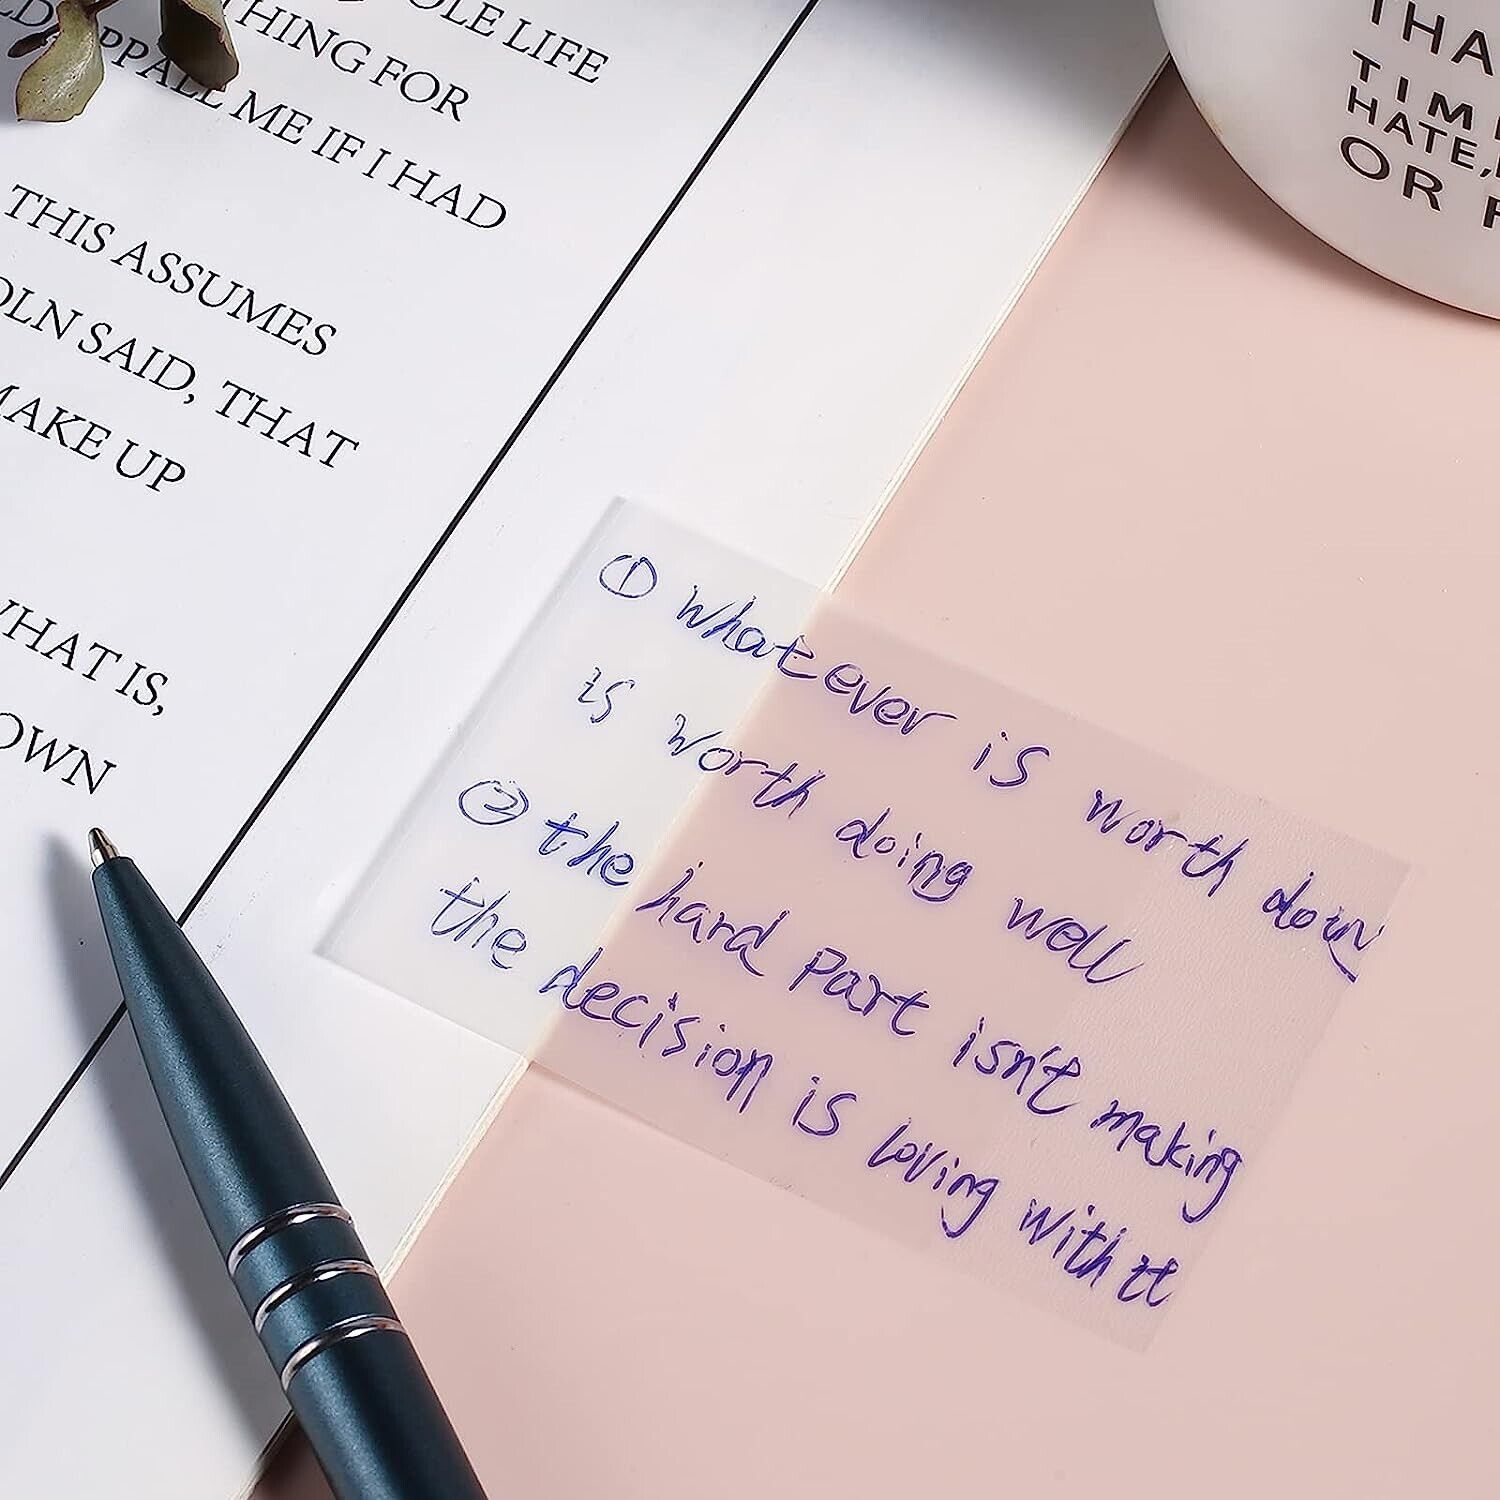 OLE LIFE
THING FOR
PPALL ME IF I HAD
THIS ASSUMES
OLN SAID, THAT
MAKE UP
WHAT IS,
OWN
① whatever is worth doin
is worth doing well
② the hard part isn't making
the decision is loving with it
THA
TIM
HATE,
OR F